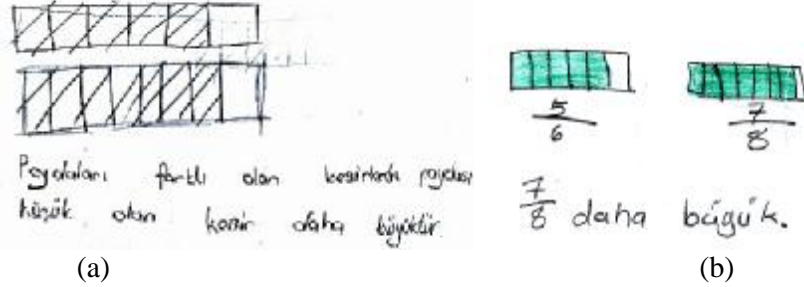 Paydaları farklı olan kesirlerde paydası
küçük olan kesir daha büyüktür.
5/6
7/8
7/8 daha büyük.
(a)
(b)